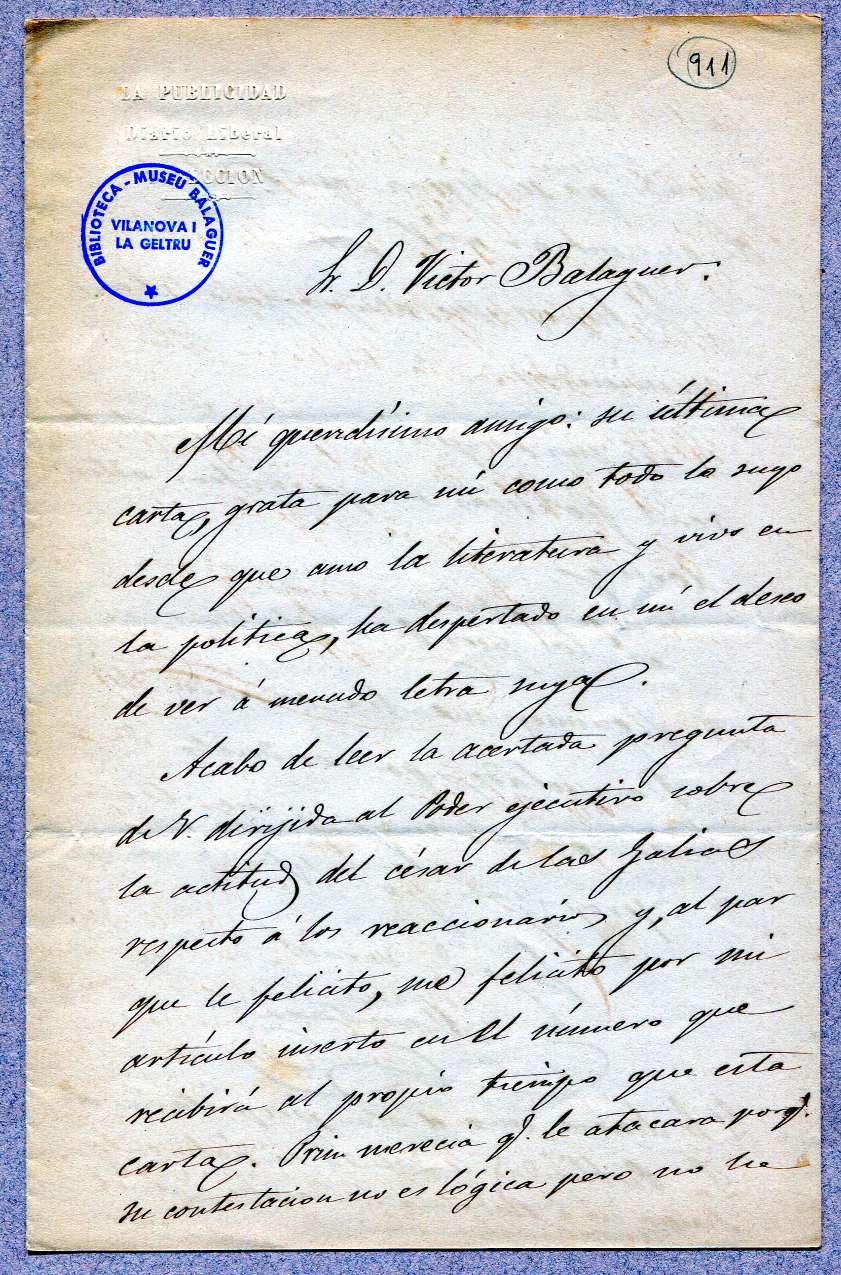 911
LA PUBLICIDAD
Diario Liberal
BIBLIOTECA - MUSEU BALAGUER
VILANOVA I
LA GELTRU
Sr. D. Victor Balaguer.
Mi queridísimo amigo: su última
carta, grata para mi como todo lo suyo
desde que amo la literatura y vivo en
la política, ha despertado en mí el deseo
de ver á menudo letra suya.
Acabo de leer la acertada pregunta
de V. dirijida al Poder ejecutivo sobre
la actitud del césar de las Galias
respecto á los reaccionarios y, al par
que le felicito, me felicito por mi
artículo inserto en el número que
recibirá al propio tiempo que esta
carta. Prim merecia q. le atacara porq.
su contestacion no es lógica pero no he